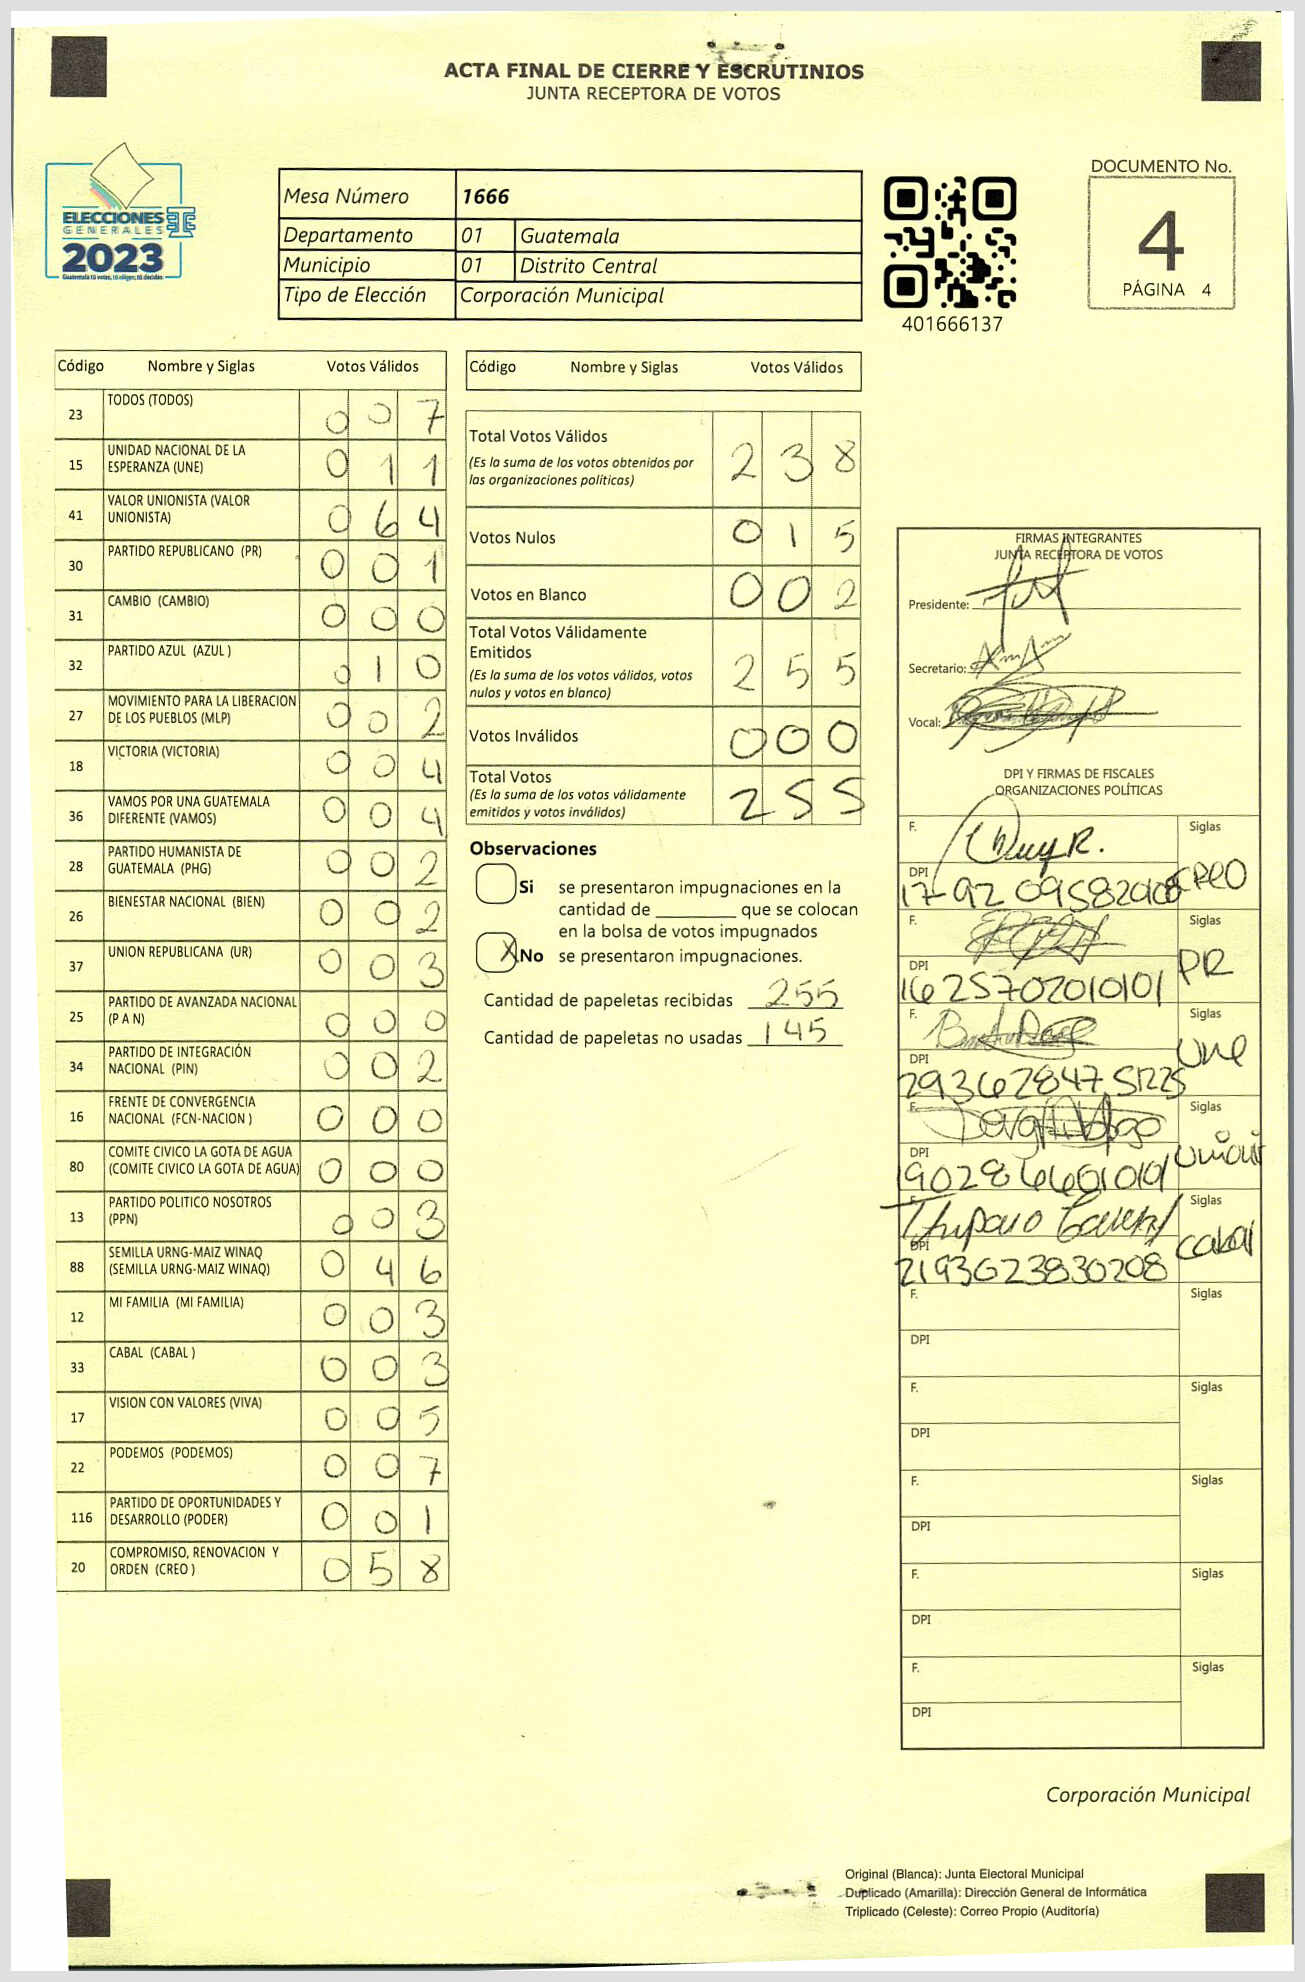 ACTA FINAL DE CIERRE Y ESCRUTINIOS
JUNTA RECEPTORA DE VOTOS
ELECCIONES
GENERALES
2023
Guatemala tú votas, tú eliges, tú decides
Mesa Número 1666
Departamento 01 Guatemala
Municipio 01 Distrito Central
Tipo de Elección Corporación Municipal
401666137
DOCUMENTO No.
4
PÁGINA 4
Código Nombre y Siglas Votos Válidos
23 TODOS (TODOS) 0 0 7
15 UNIDAD NACIONAL DE LA ESPERANZA (UNE) 0 1 1
41 VALOR UNIONISTA (VALOR UNIONISTA) 0 6 4
30 PARTIDO REPUBLICANO (PR) 0 0 1
31 CAMBIO (CAMBIO) 0 0 0
32 PARTIDO AZUL (AZUL ) 0 1 0
27 MOVIMIENTO PARA LA LIBERACION DE LOS PUEBLOS (MLP) 0 0 2
18 VICTORIA (VICTORIA) 0 0 4
36 VAMOS POR UNA GUATEMALA DIFERENTE (VAMOS) 0 0 4
28 PARTIDO HUMANISTA DE GUATEMALA (PHG) 0 0 2
26 BIENESTAR NACIONAL (BIEN) 0 0 2
37 UNION REPUBLICANA (UR) 0 0 3
25 PARTIDO DE AVANZADA NACIONAL (P A N) 0 0 0
34 PARTIDO DE INTEGRACIÓN NACIONAL (PIN) 0 0 2
16 FRENTE DE CONVERGENCIA NACIONAL (FCN-NACION ) 0 0 0
80 COMITE CIVICO LA GOTA DE AGUA (COMITE CIVICO LA GOTA DE AGUA) 0 0 0
13 PARTIDO POLITICO NOSOTROS (PPN) 0 0 3
88 SEMILLA URNG-MAIZ WINAQ (SEMILLA URNG-MAIZ WINAQ) 0 4 6
12 MI FAMILIA (MI FAMILIA) 0 0 3
33 CABAL (CABAL ) 0 0 3
17 VISION CON VALORES (VIVA) 0 0 5
22 PODEMOS (PODEMOS) 0 0 7
116 PARTIDO DE OPORTUNIDADES Y DESARROLLO (PODER) 0 0 1
20 COMPROMISO, RENOVACION Y ORDEN (CREO ) 0 5 8
Código Nombre y Siglas Votos Válidos
Total Votos Válidos 2 3 8
(Es la suma de los votos obtenidos por
las organizaciones políticas)
Votos Nulos 0 1 5
Votos en Blanco 0 0 2
Total Votos Válidamente
Emitidos 2 5 5
(Es la suma de los votos válidos, votos
nulos y votos en blanco)
Votos Inválidos 0 0 0
Total Votos 2 5 5
(Es la suma de los votos válidamente
emitidos y votos inválidos)
Observaciones
Si se presentaron impugnaciones en la
cantidad de ________ que se colocan
en la bolsa de votos impugnados
X No se presentaron impugnaciones.
Cantidad de papeletas recibidas 255
Cantidad de papeletas no usadas 145
FIRMAS INTEGRANTES
JUNTA RECEPTORA DE VOTOS
Presidente:
Secretario:
Vocal:
DPI Y FIRMAS DE FISCALES
ORGANIZACIONES POLÍTICAS
F. Siglas
DPI CREO
F. Siglas
DPI PR
1625702010101
F. Siglas
DPI Une
F. Siglas
DPI
1902866601010
F. Siglas
DPI Cabal
2193623830208
F. Siglas
DPI
F. Siglas
DPI
F. Siglas
DPI
F. Siglas
DPI
F. Siglas
DPI
Corporación Municipal
Original (Blanca): Junta Electoral Municipal
Duplicado (Amarilla): Dirección General de Informática
Triplicado (Celeste): Correo Propio (Auditoría)